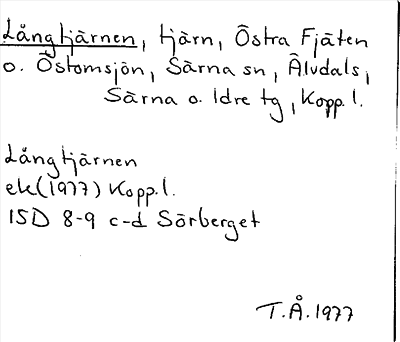 Långtjärnen, tjärn, Östra Fjäten
o. Östomsjön, Särna sn, Älvdals,
Särna o. Idre tg, Kopp. l.
Långtjärnen
ek(1977) Kopp. l.
15D 8-9 c-d Sörberget
T.Å. 1977